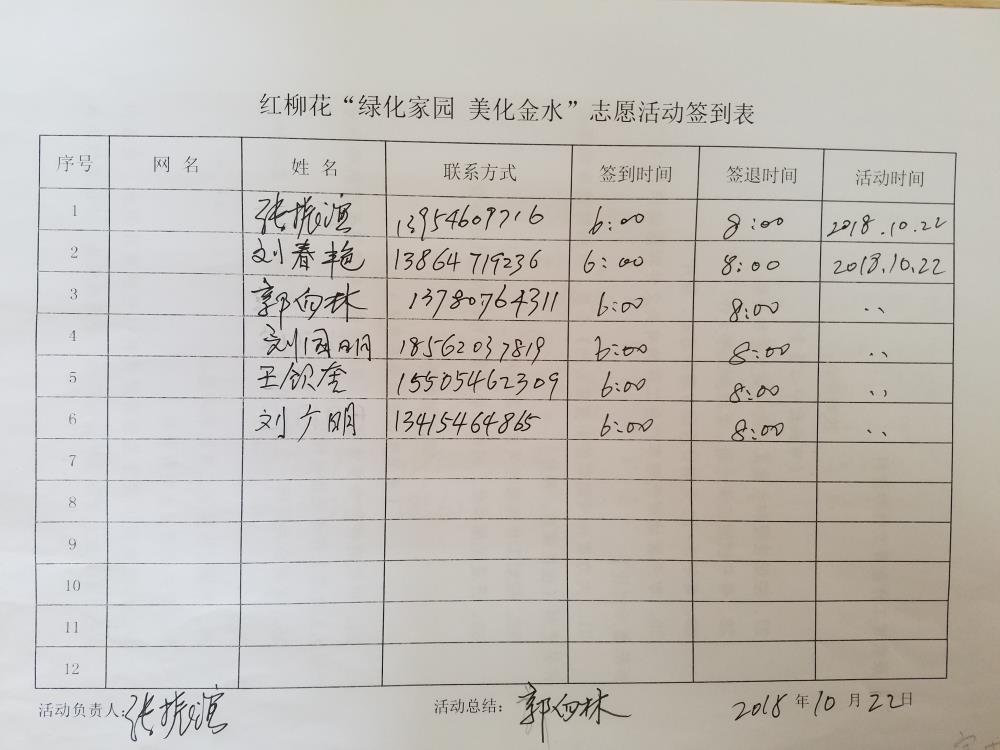 红柳花“绿化家园 美化金水”志愿活动签到表
序号 网 名 姓 名 联系方式 签到时间 签退时间 活动时间
1 张振滨 13954609716 6:00 8:00 2018.10.22
2 刘春艳 13864719236 6:00 8:00 2018.10.22
3 郭向林 13780764311 6:00 8:00 、、
4 刘国明 18562037819 6:00 8:00 、、
5 王钦奎 15505462309 6:00 8:00 、、
6 刘广明 13415464865 6:00 8:00 、、
7
8
9
10
11
12
活动负责人:张振滨 活动总结:郭向林 2018 年 10 月 22 日